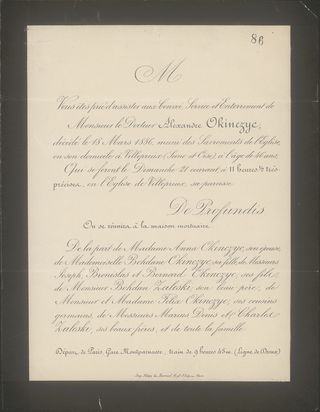 86
M
Vous êtes prié d'assister aux Convoi, Service et Enterrement de
Monsieur le Docteur Alexandre Okinczyc,
décédé le 18 Mars 1886, muni des Sacrements de l'Église,
en son domicile à Villepreux (Seine et Oise), à l'âge de 46 ans,
Qui se feront le Dimanche 21 courant à 11 heures ½ très
précises, en l'Église de Villepreux, sa paroisse.
De Profundis
On se réunira à la maison mortuaire.
De la part de Madame Anna Okinczyc, son épouse,
de Mademoiselle Bohdane Okinczyc, sa fille, de Messieurs
Joseph, Bronislas et Bernard Okinczyc, ses fils,
de Monsieur Bohdan Zaleski, son beau père, de
Monsieur et Madame Félix Okinczyc, ses cousins
germains, de Messieurs Marcus Denis et Charles
Zaleski, ses beaux frères, et de toute la famille.
Départ de Paris, Gare Montparnasse, train de 9 heures 45 m. (Ligne de Dreux)